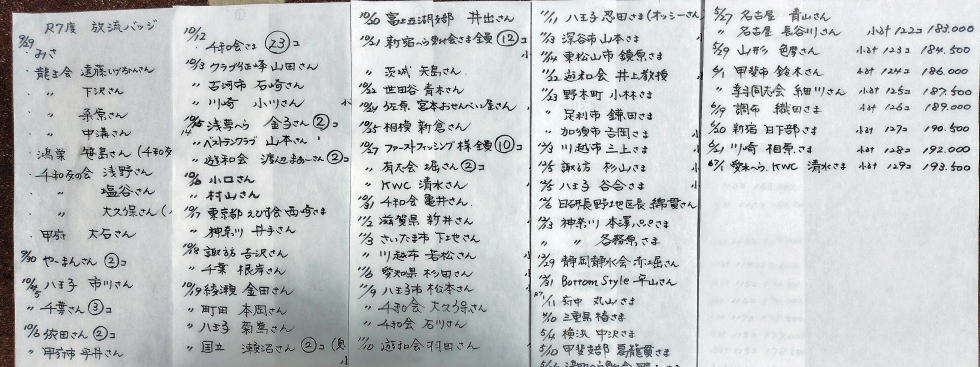 R7度 放流バッジ
9/29
みさ
龍王会 遠藤いげちゃんさん
〃 下沢さん
〃 桑原さん
〃 中溝さん
鴻巣 笹島さん(千和
千和友の会 浅野さん
〃 塩谷さん
〃 大久保さん(
甲府 大石さん
9/30 やーまんさん ②コ
八王子 市川さん
〃 千葉さん ③コ
10/6 依田さん ②コ
〃 甲府市 平井さん
10/12
千和会さま ㉓コ
10/13 クラブ佐峰 山田さん
〃 古河市 石崎さん
〃 川崎 小川さん
浅草へら 金子さん ②コ
〃 ベストランクラブ 山本さん
〃 遊和会 渡辺まぁーさん ②コ
小口さん
〃 村山さん
東京都 えびす会 西崎さま
〃 神奈川 井手さん
諏訪 吉沢さん
〃 千葉 根岸さん
10/19 綾瀬 金田さん
〃 町田 本岡さん
〃 八王子 菊
〃 国立 瀬沼さん ②コ
10/20 富士五湖支部 井出さん
10/21 新宿へら 全員 ⑫コ
〃 茨城 矢島さん
世田谷 青木さん
佐原 宮本おせんべい屋さん
相模 新倉さん
ファーストフィッシング様 全員 ⑩コ
〃 有志会 堀さん ②コ
〃 KWC 清水さん
千和会 亀井さん
滋賀県 新井さん
さいたま市 下地さん
〃 川越市 若松さん
愛知県 杉田さん
11/9 八王子市 松本さん
〃 千和会 大久保さん
〃 千和会 石川さん
11/10 遊和会 羽田さん
11/11 八王子 忍田さま(オッシーさん)
深谷市 山本さま
東松山市 鏡原さま
遊和会 井上教授
野木町 小林さま
〃 足利市 鎌田さま
〃 加須市 吉岡さま
川越市 三上さま
諏訪 杉山さま
八王子 谷合さま
日研長野地区長 綿貫さん
神奈川 本澤パパさま
〃 〃 各務原さま
静岡静水会 赤堀さん
Bottom Style 平山さん
1/11 府中 丸山さま
三重県 椿さま
横浜 中沢さま
5/10 甲斐支部 葛龍貫さま
5/27 名古屋 青山さん
〃 名古屋 長谷川さん 小計 122コ 183.000
5/29 山形 色摩さん 小計 123コ 184.500
6/1 甲斐市 鈴木さん 小計 124コ 186.000
〃 細川さん 小計 125コ 187.500
調布 織田さま 小計 126コ 189.000
新宿 日下部さま 小計 127コ 190.500
川崎 相原さま 小計 128コ 192.000
愛水へら、KWC 清水さま 小計 129コ 193.500